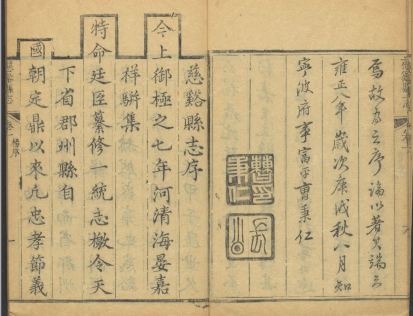 為故為之序論以著其端云
雍正八年歲次庚戌秋八月知
寧波府事富平曹秉仁
曹印
秉仁
慈谿縣志序
今上御極之七年河清海晏嘉
祥駢集
特命廷臣纂修一統志檄令天
下省郡州縣自
國朝定鼎以來凡忠孝節義